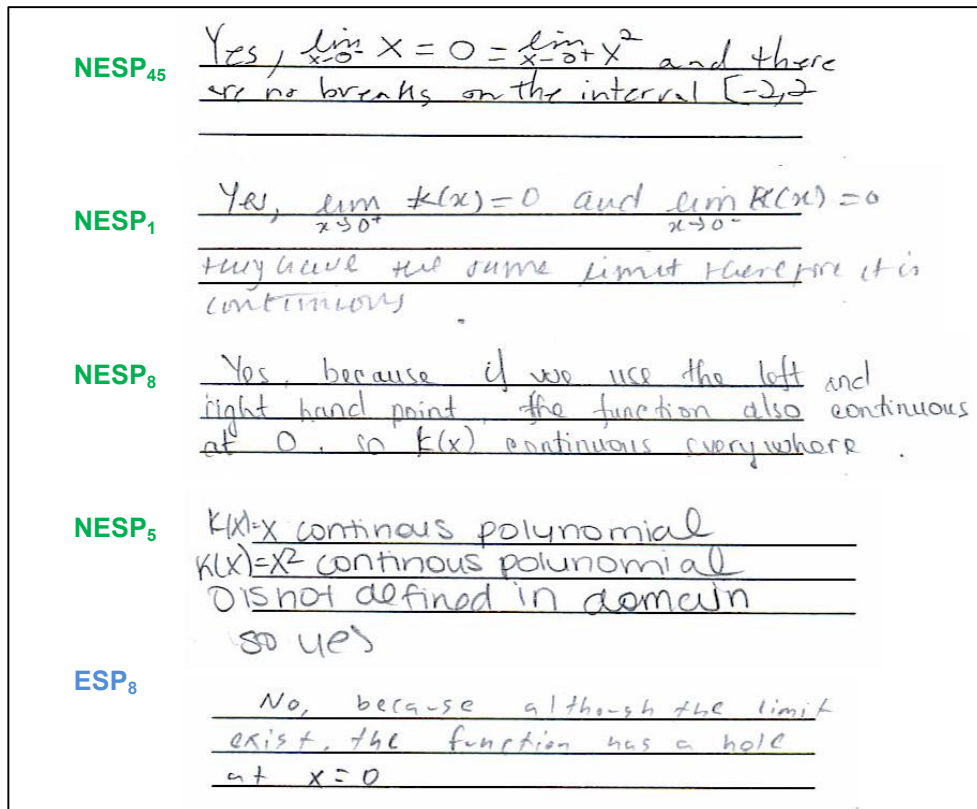 NESP₄₅
Yes, lim x→0⁻ x = 0 = lim x→0⁺ x² and there
are no breaks on the interval [-2,2
NESP₁
Yes, lim x→0⁺ k(x)=0 and lim x→0⁻ k(x)=0
they have the same limit therefore it is
continuous
NESP₈
Yes, because if we use the left and
right hand point, the function also continuous
at 0, so k(x) continuous everywhere.
NESP₅
K(x)=x continous polynomial
K(x)=x² continous polunomial
0 is not defined in domain
so yes
ESP₈
No, because although the limit
exist, the function has a hole
at x=0